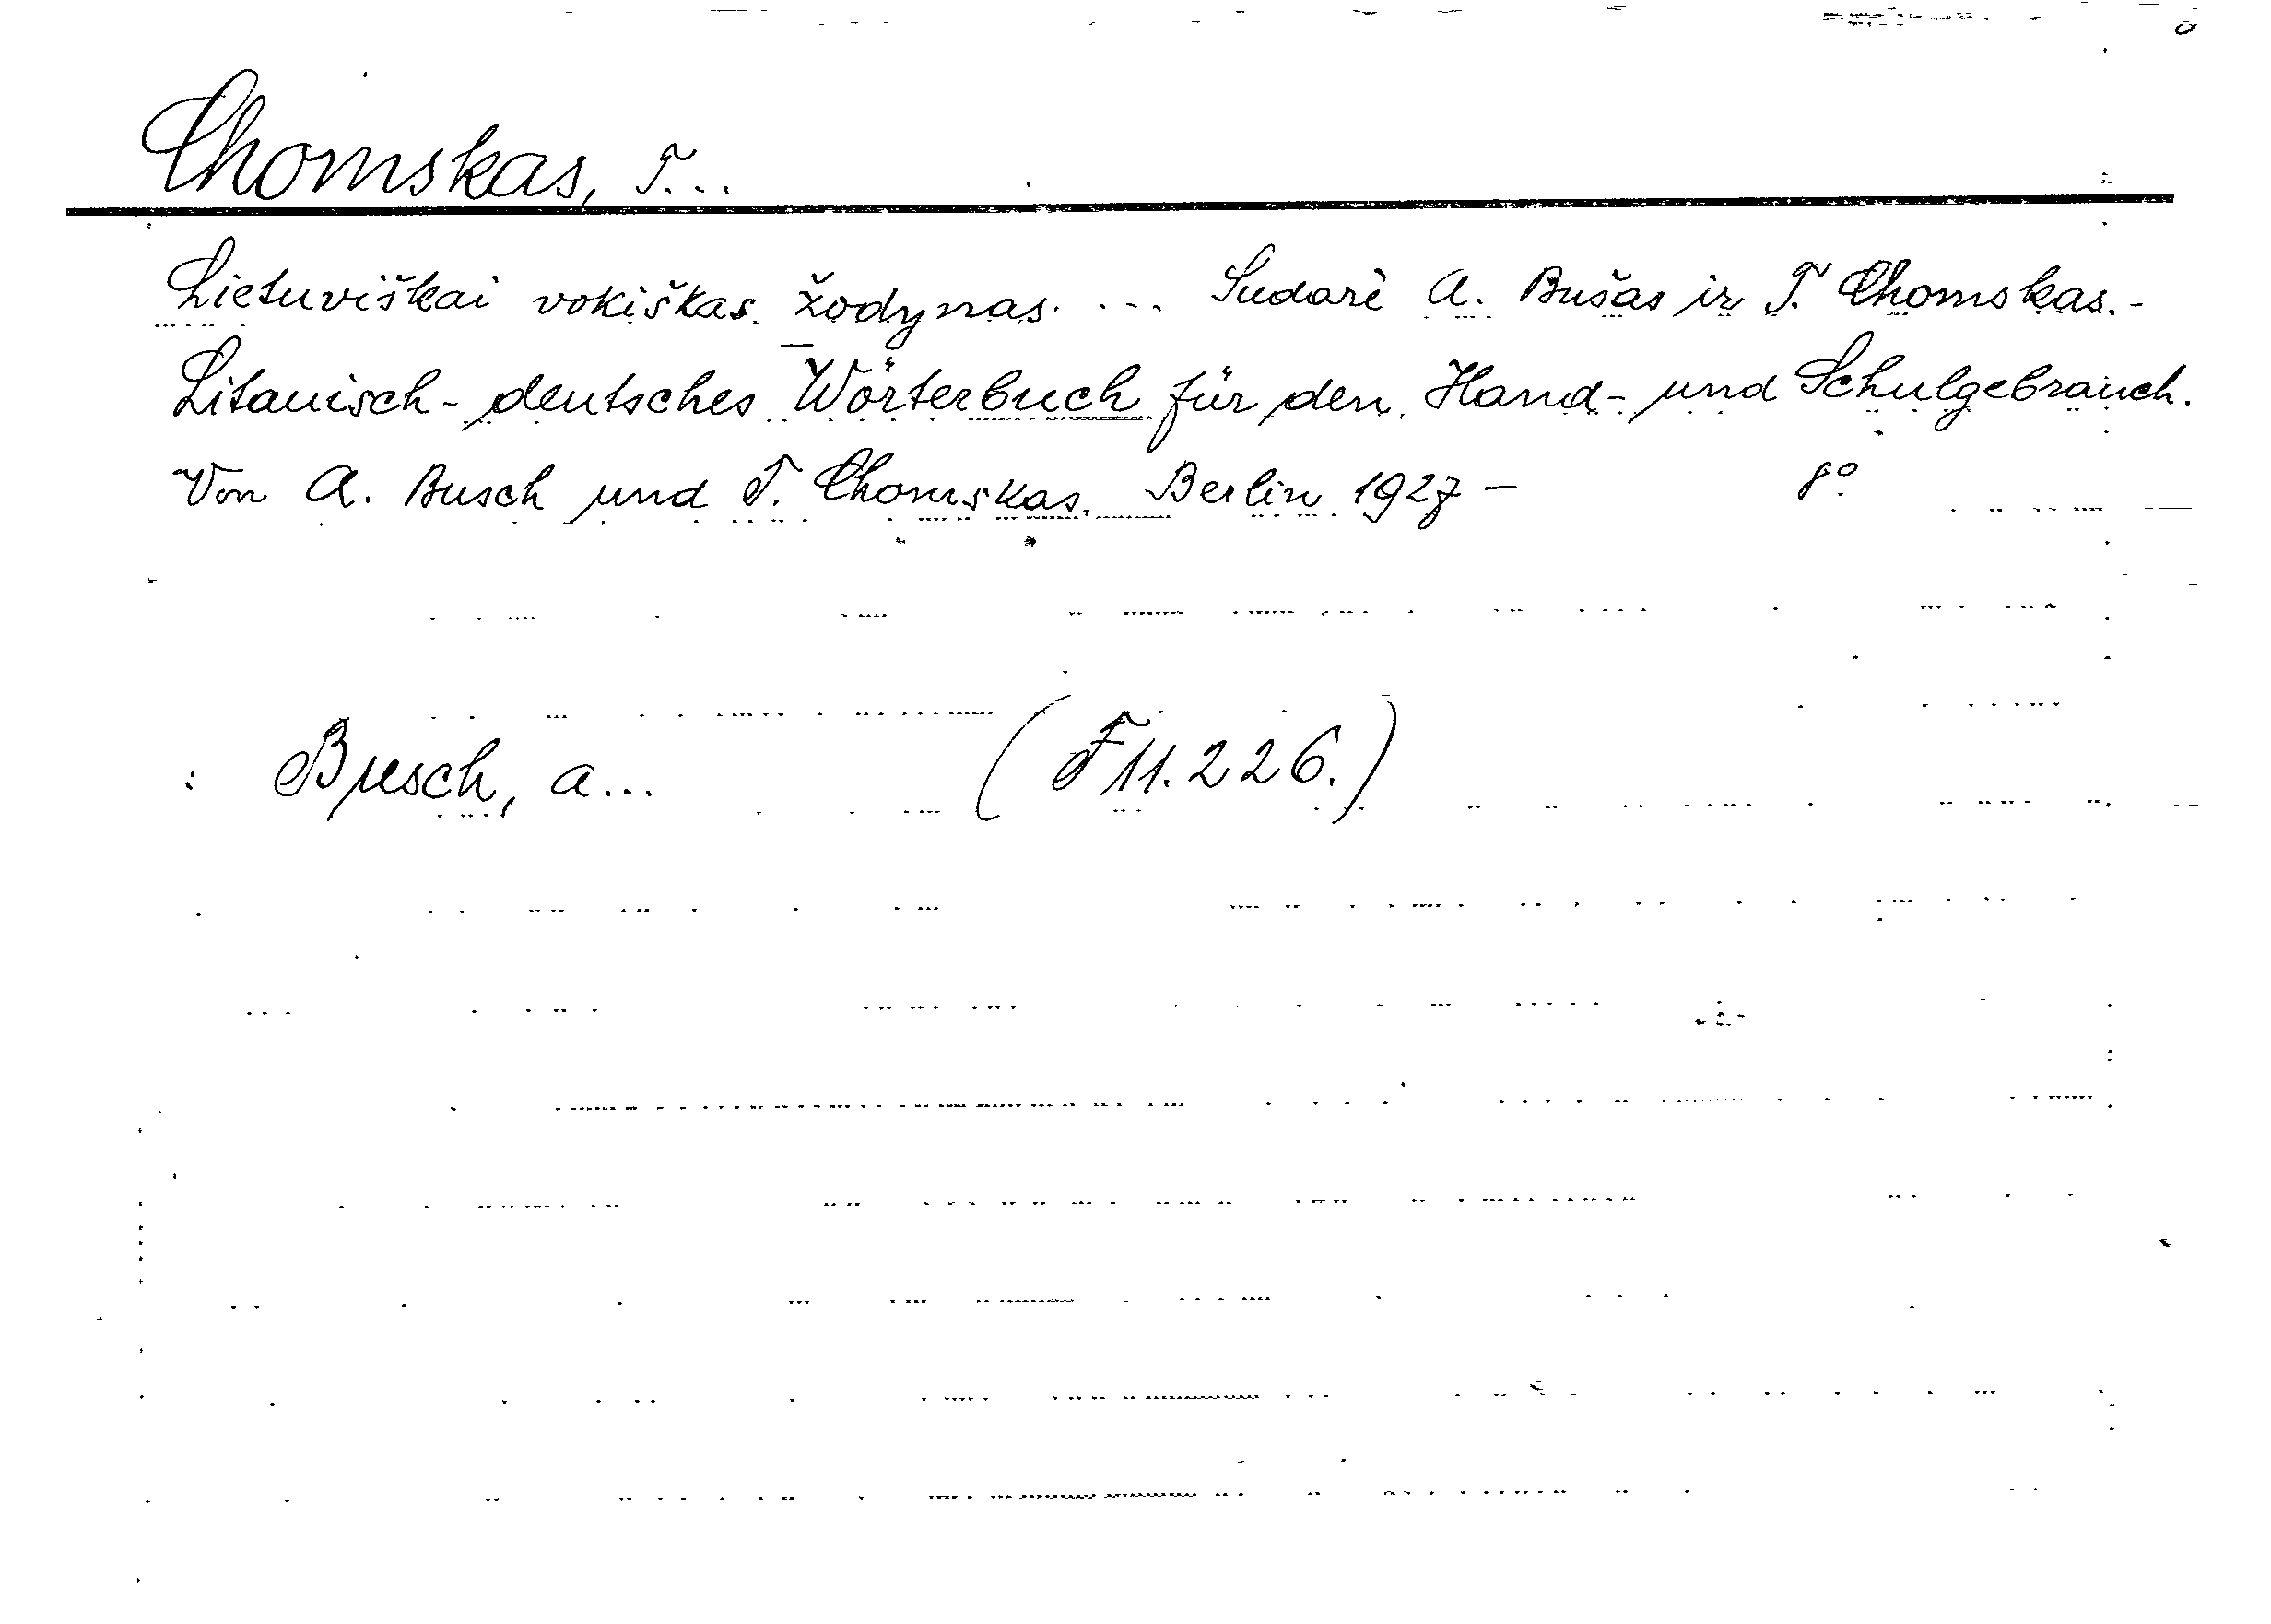 Chomskas, T...
Lietuviškai vokiškas žodynas. ... Sudarė A. Bušas ir T. Chomskas.-
Litauisch-deutsches Wörterbuch für den Hand- und Schulgebrauch.
Von A. Busch und T. Chomskas. Berlin 1927 - 8°
: Busch, A... (F11.226.)